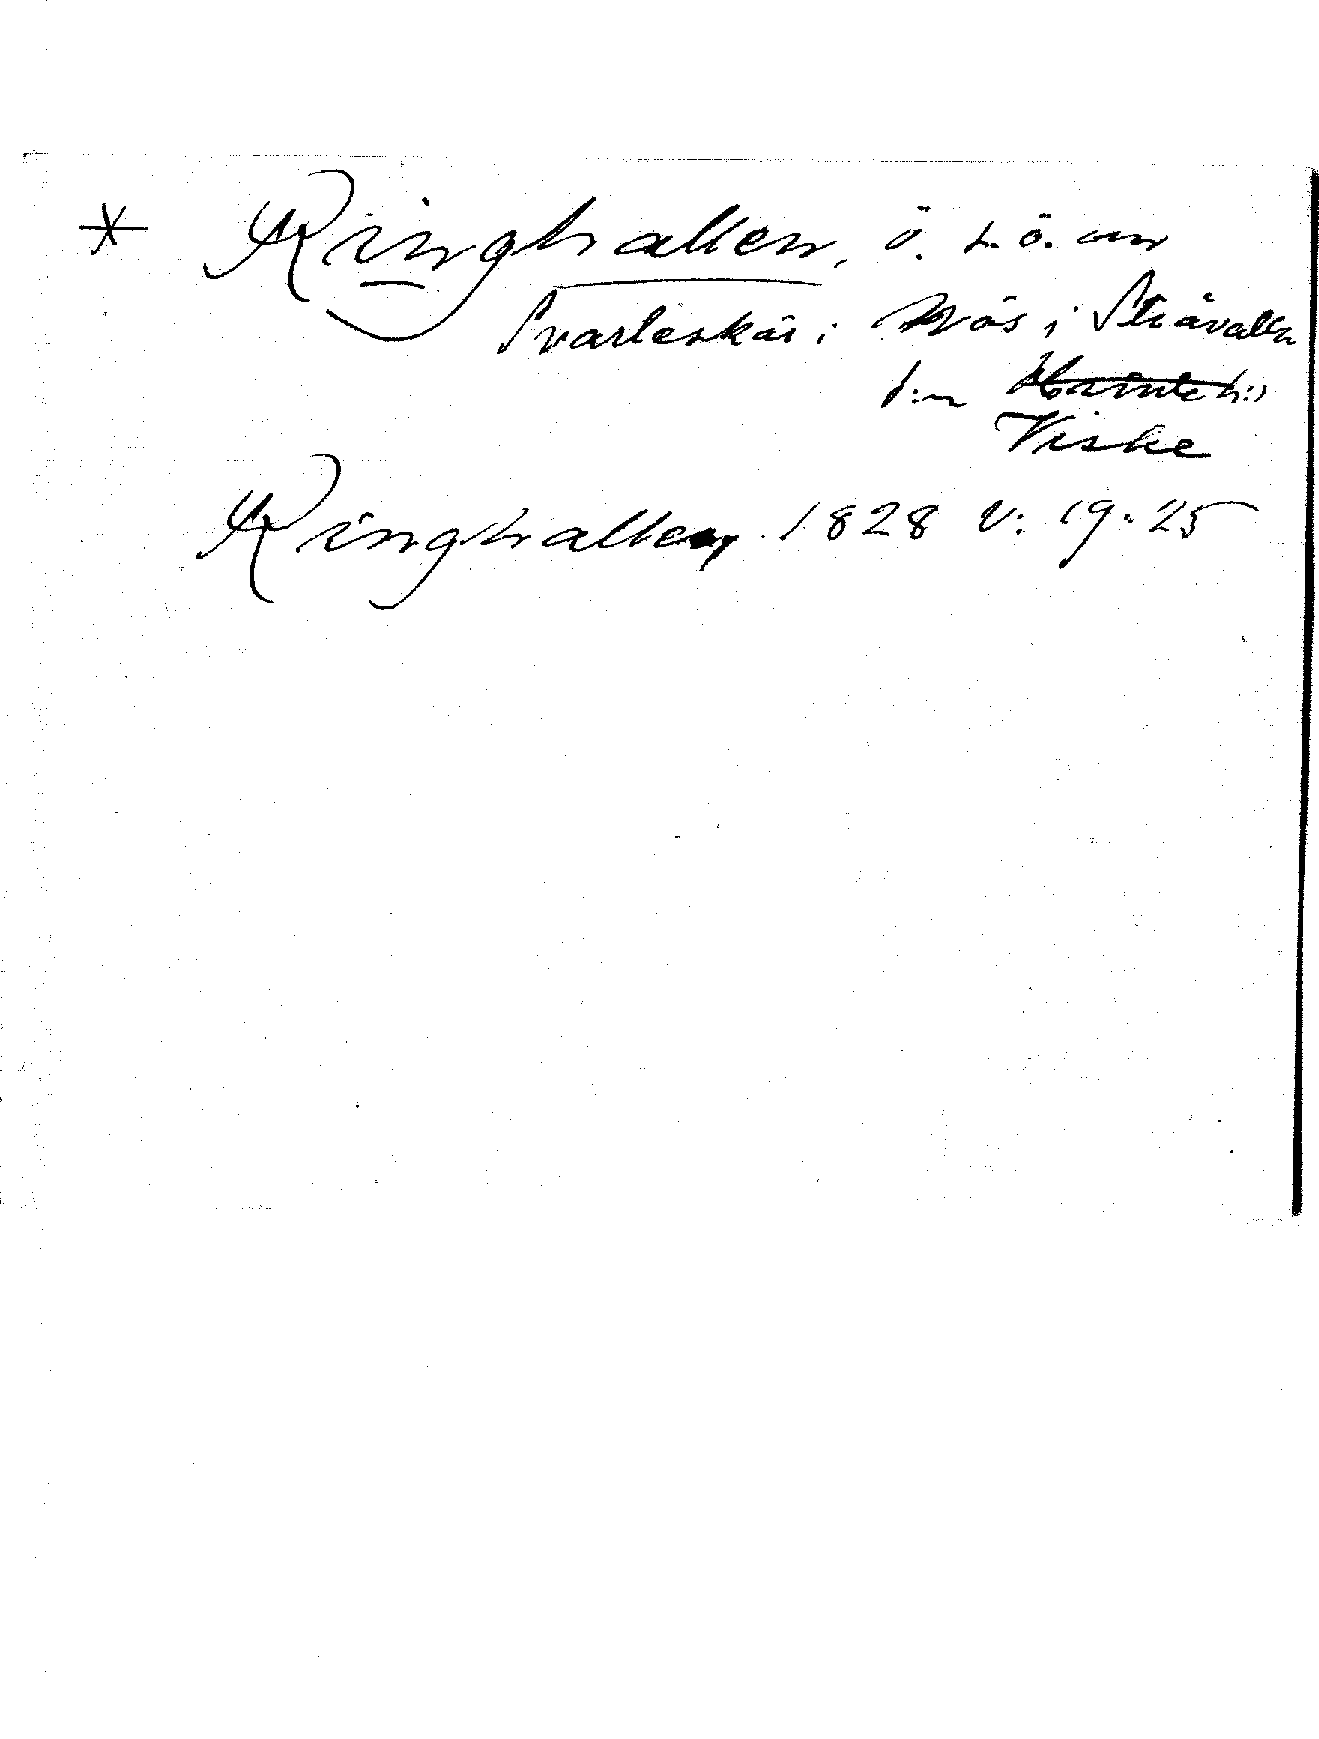 * Ringhallen, ö. s. ö. om
Svarteskär i Näs i Stråvalla
s:n Himle h:d
Viske
Ringhallen 1828 V: 19: 25